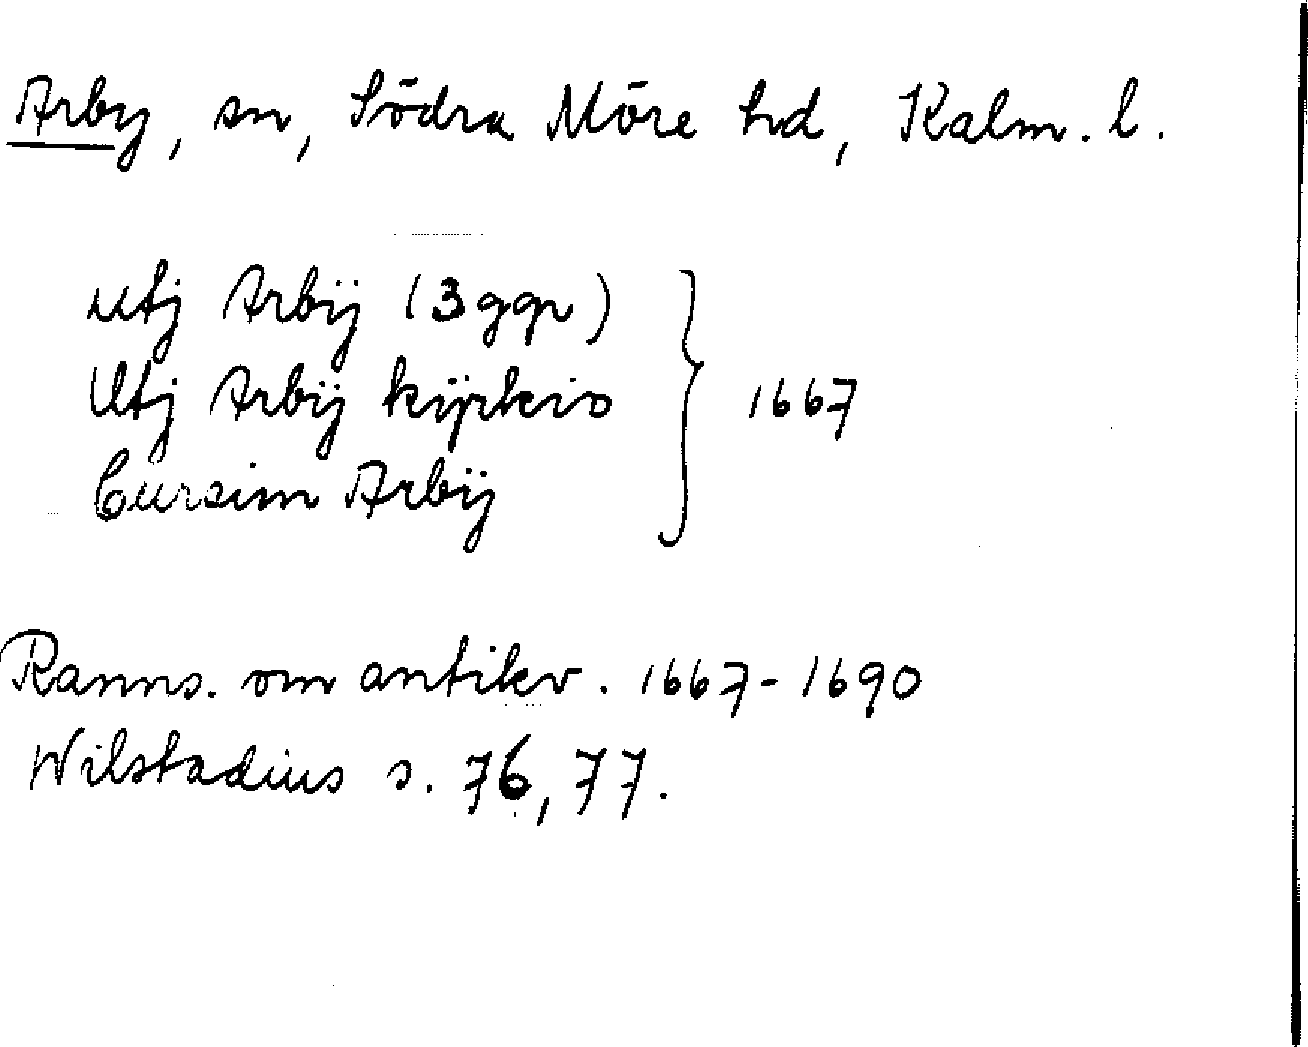 Arby, sn, Södra Möre hd, Kalm. l.
utj Arbÿ (3 ggr)
Utj Arbÿ kÿrkio } 1667
Cursim Arbÿ
Ranns. om antikv. 1667-1690
Wilstadius s. 76, 77.